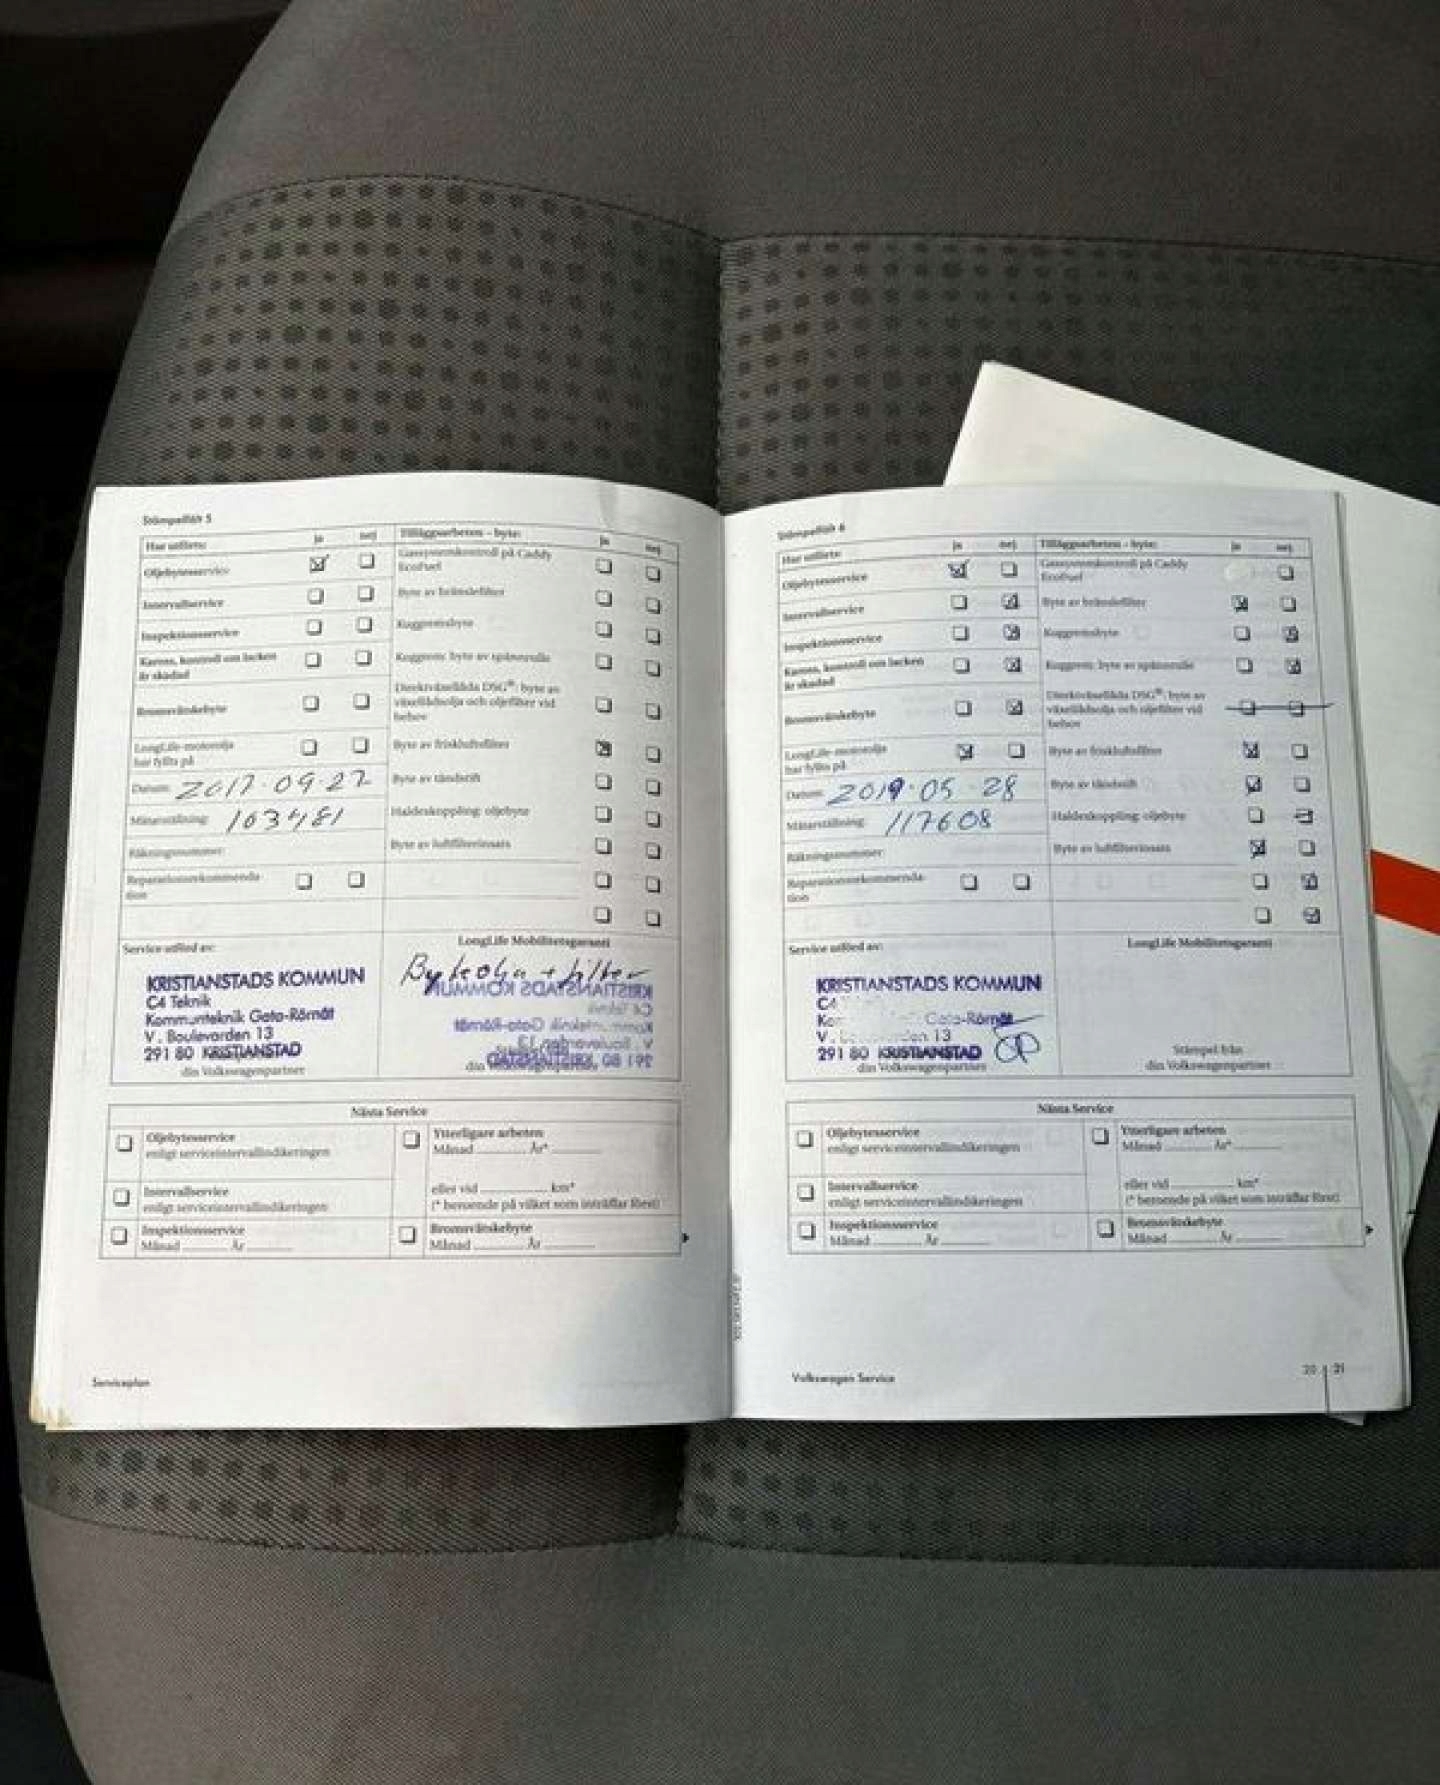 Stämpelfält 5
Har utförts: ja nej
Oljebytesservice
Intervallservice
Inspektionsservice
Kaross, kontroll om lacken
är skadad
Bromsvätskebyte
LongLife-motorolja
har fyllts på
Datum: 2017.09.27
Mätarställning: 103481
Räkningsnummer:
Reparationsrekommenda-
tion
Tilläggsarbeten - byte: ja nej
Gassystemkontroll på Caddy
EcoFuel
Byte av bränslefilter
Kuggremsbyte
Kuggrem: byte av spännrulle
Direktväxellåda DSG®: byte av
växellådsolja och oljefilter vid
behov
Byte av friskluftsfilter
Byte av tändstift
Haldexkoppling: oljebyte
Byte av luftfilterinsats
Service utförd av:
KRISTIANSTADS KOMMUN
C4 Teknik
Kommunteknik Gata-Rörnät
V. Boulevarden 13
291 80 KRISTIANSTAD
din Volkswagenpartner
LongLife Mobilitetsgaranti
Byte olja + filter
din Volkswagenpartner
Nästa Service
Oljebytesservice
enligt serviceintervallindikeringen
Intervallservice
enligt serviceintervallindikeringen
Inspektionsservice
Månad År
Ytterligare arbeten
Månad År*
eller vid km*
(* beroende på vilket som inträffar först)
Bromsvätskebyte
Månad År
Serviceplan
Stämpelfält 6
Har utförts: ja nej
Oljebytesservice
Intervallservice
Inspektionsservice
Kaross, kontroll om lacken
är skadad
Bromsvätskebyte
LongLife-motorolja
har fyllts på
Datum: 2019.05.28
Mätarställning: 117608
Räkningsnummer:
Reparationsrekommenda-
tion
Tilläggsarbeten - byte: ja nej
Gassystemkontroll på Caddy
EcoFuel
Byte av bränslefilter
Kuggremsbyte
Kuggrem: byte av spännrulle
Direktväxellåda DSG®: byte av
växellådsolja och oljefilter vid
behov
Byte av friskluftsfilter
Byte av tändstift
Haldexkoppling: oljebyte
Byte av luftfilterinsats
Service utförd av:
KRISTIANSTADS KOMMUN
C4
Gata-Rörnät
V. 13
291 80 KRISTIANSTAD
din Volkswagenpartner
LongLife Mobilitetsgaranti
Stämpel från
din Volkswagenpartner
Nästa Service
Oljebytesservice
enligt serviceintervallindikeringen
Intervallservice
enligt serviceintervallindikeringen
Inspektionsservice
Månad År
Ytterligare arbeten
Månad År*
eller vid km*
(* beroende på vilket som inträffar först)
Bromsvätskebyte
Månad År
Volkswagen Service
20 21